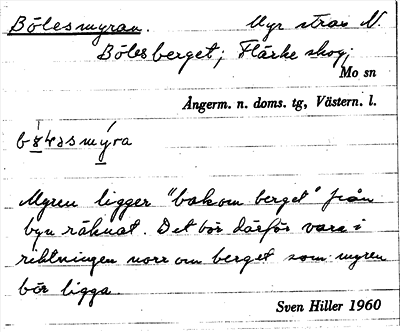 Bölesmyran. Myr strax N.
Bölesberget; Flärke skog;
Mo sn
Ångerm. n. doms. tg, Västern. l.
Myren ligger "bakom berget" från
byn räknat. Det bör därför vara i
riktningen norr om berget som myren
bör ligga.
Sven Hiller 1960